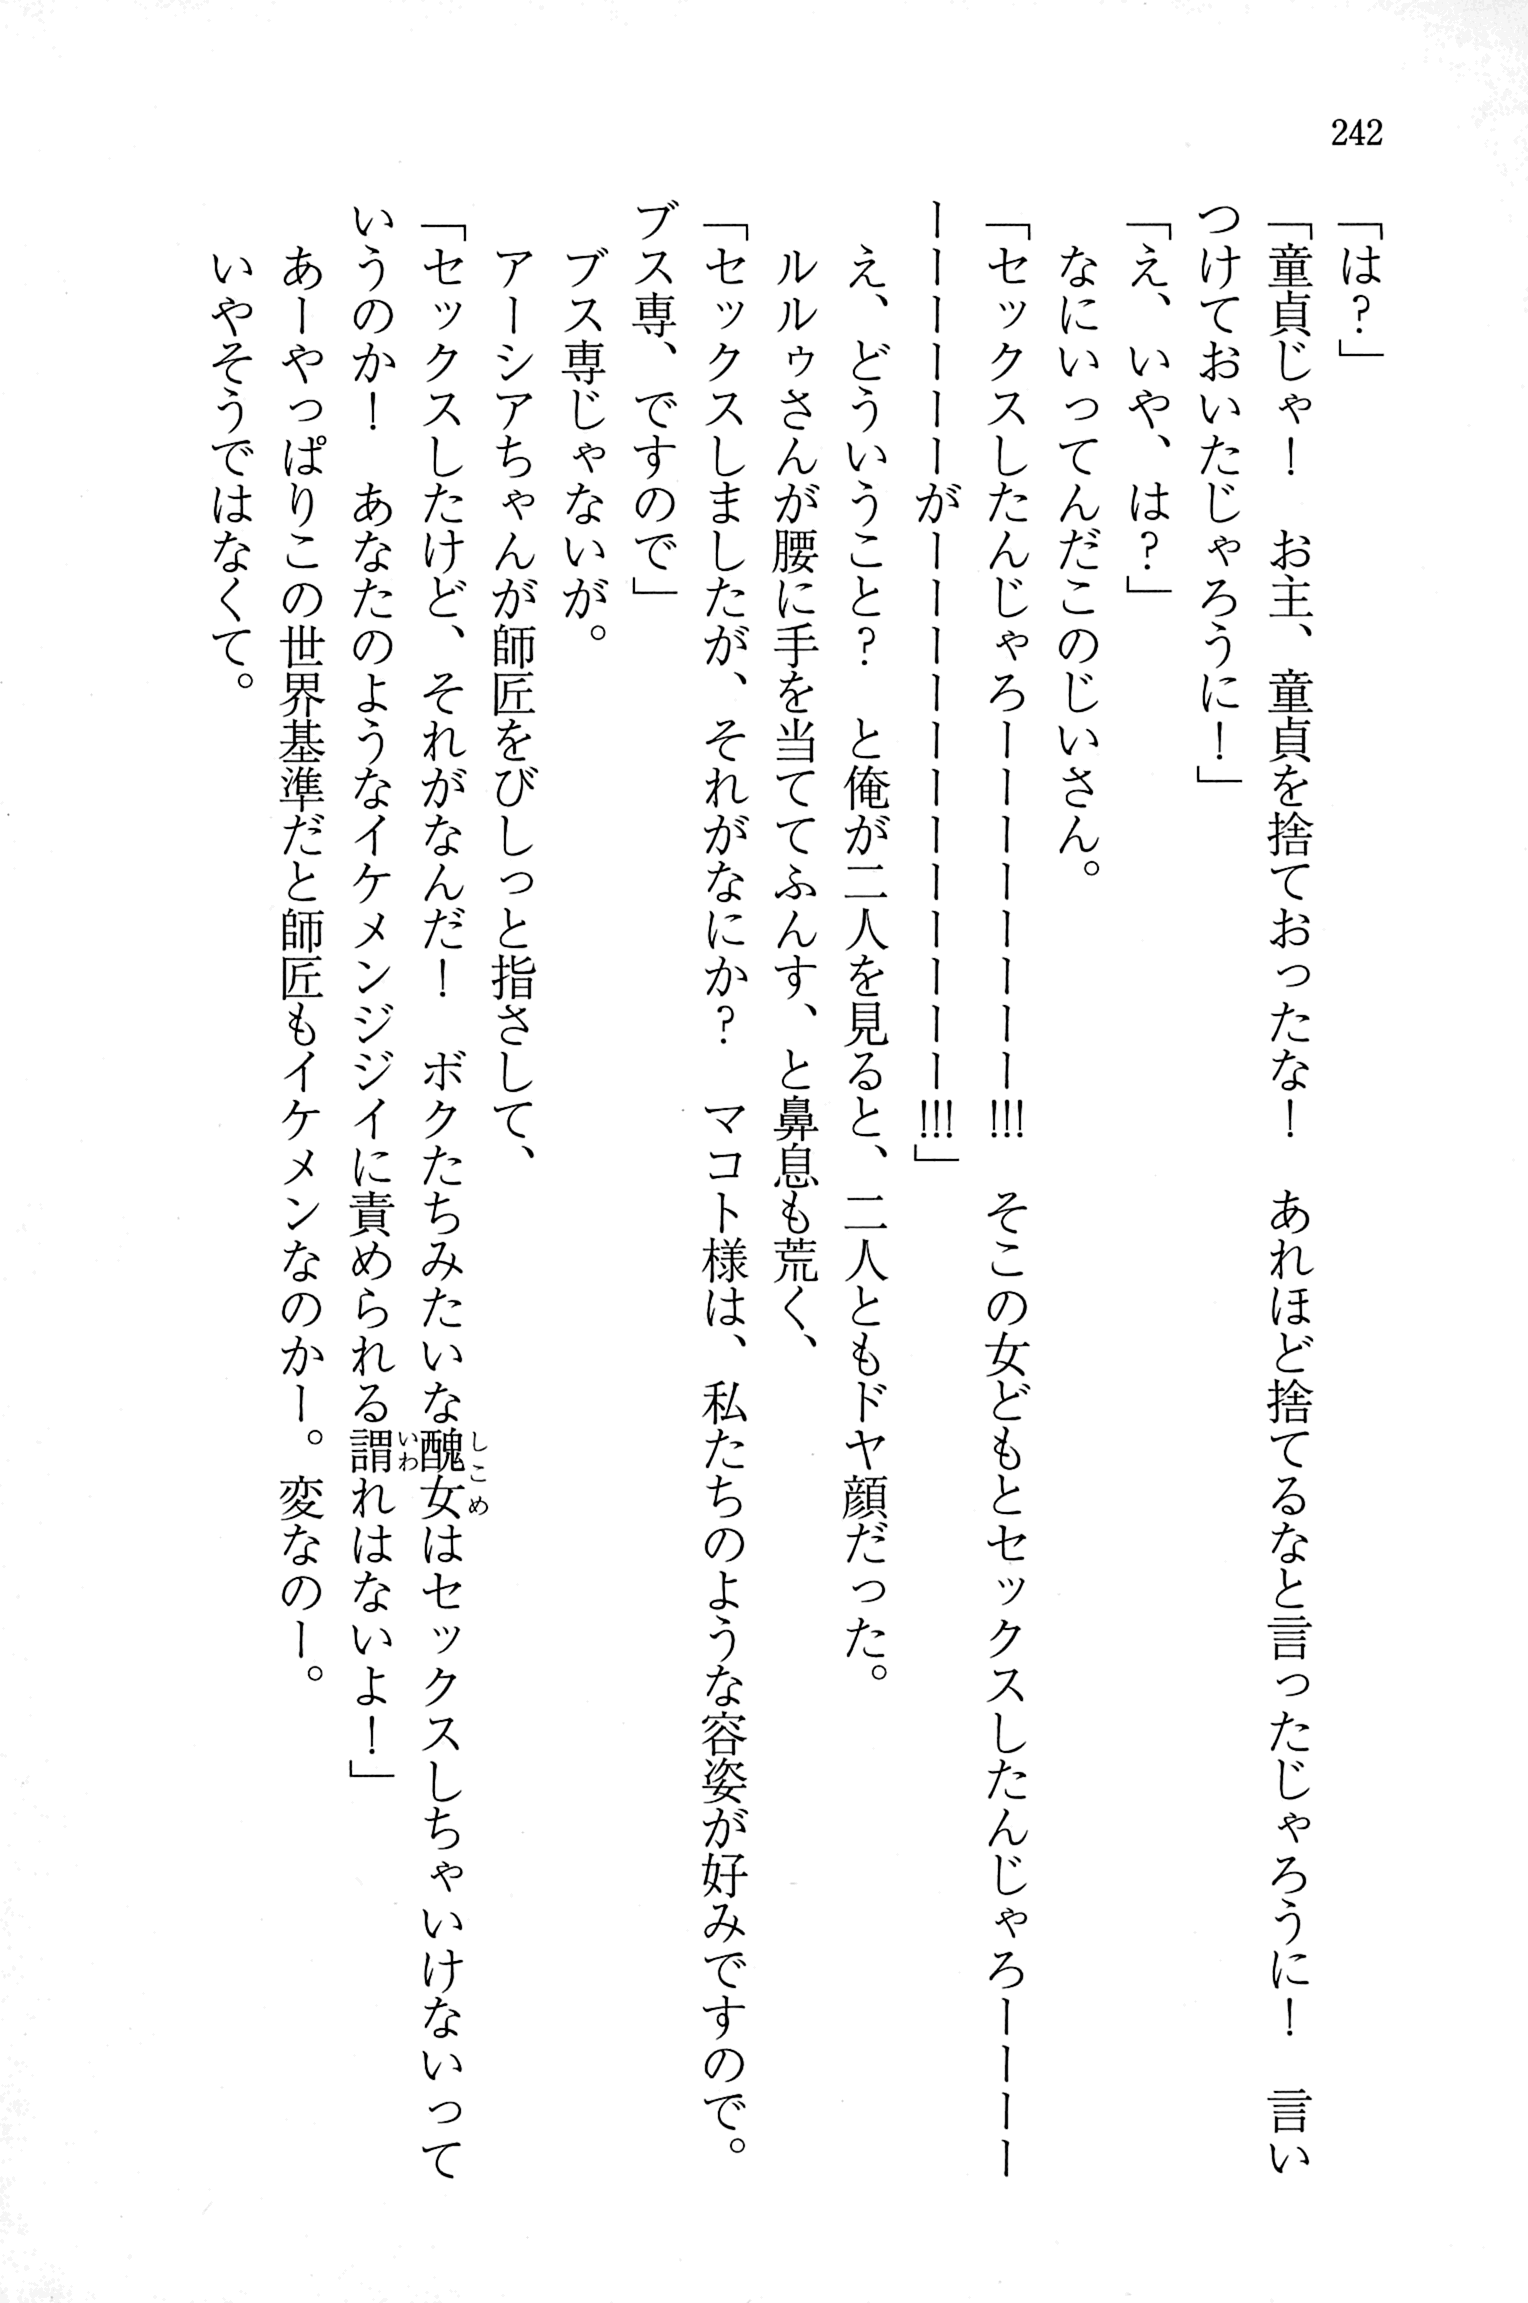 242
「は？」
「童貞じゃ！　お主、童貞を捨ておったな！　あれほど捨てるなと言ったじゃろうに！　言い
つけておいたじゃろうに！」
「え、いや、は？」
　なにいってんだこのじいさん。
「セックスしたんじゃろーーーーーーーー!!!　そこの女どもとセックスしたんじゃろーーーー
ーーーーーーがーーーーーーーーーーーー!!!」
　え、どういうこと？　と俺が二人を見ると、二人ともドヤ顔だった。
　ルルゥさんが腰に手を当ててふんす、と鼻息も荒く、
「セックスしましたが、それがなにか？　マコト様は、私たちのような容姿が好みですので。
ブス専、ですので」
　ブス専じゃないが。
　アーシアちゃんが師匠をびしっと指さして、
「セックスしたけど、それがなんだ！　ボクたちみたいな醜女はセックスしちゃいけないって
いうのか！　あなたのようなイケメンジジイに責められる謂れはないよ！」
　あーやっぱりこの世界基準だと師匠もイケメンなのかー。変なのー。
　いやそうではなくて。